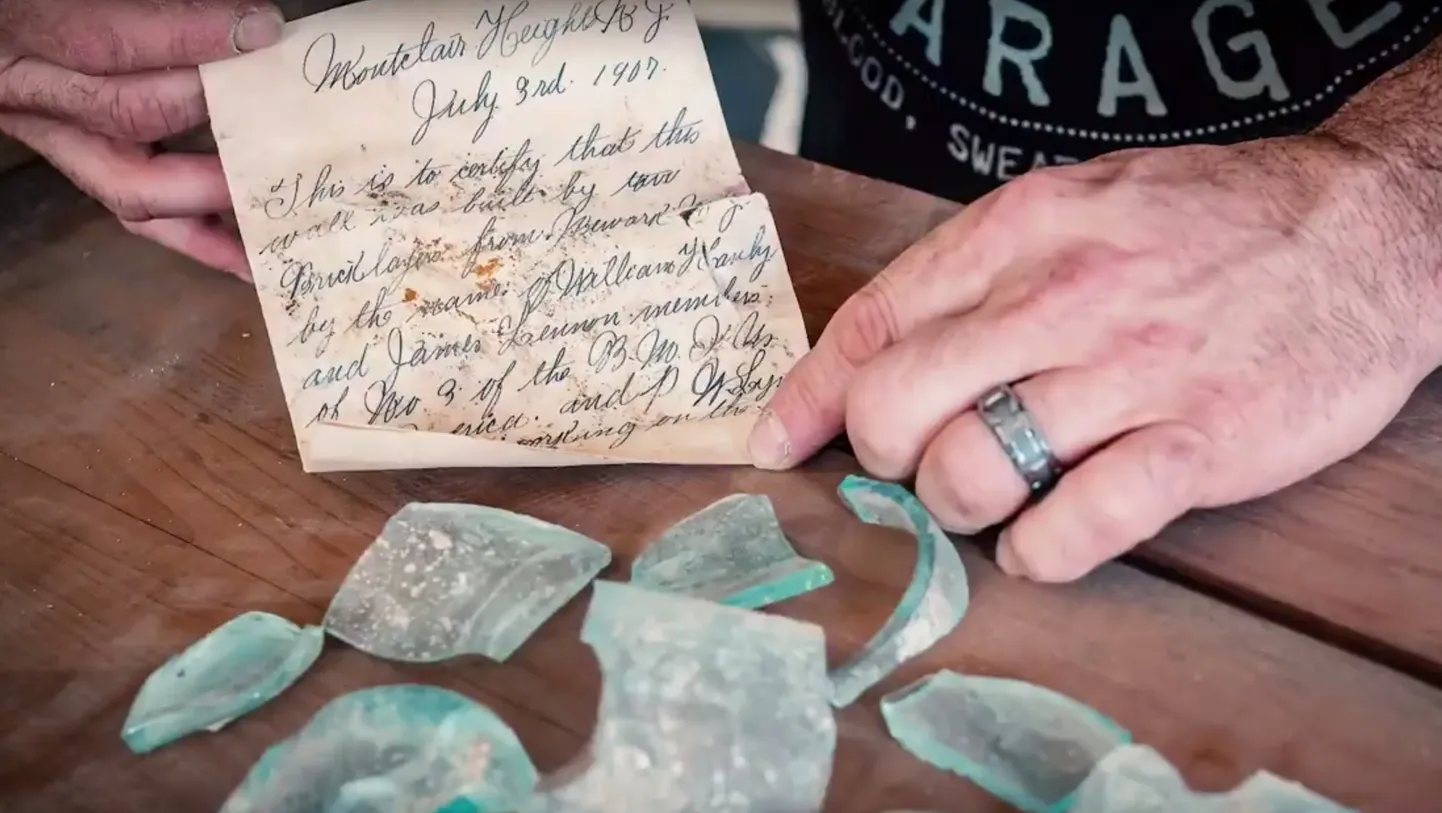 Montclair Heights N J
July 3rd. 1907.
This is to certify that this
wall was built by two
Bricklayers from Newark N. J.
by the name of William Hanly
and James Lennon members
of No. 3 of the B. M. I U.
erica. and P
orking on the
ARAGE
BLOOD, SWEA